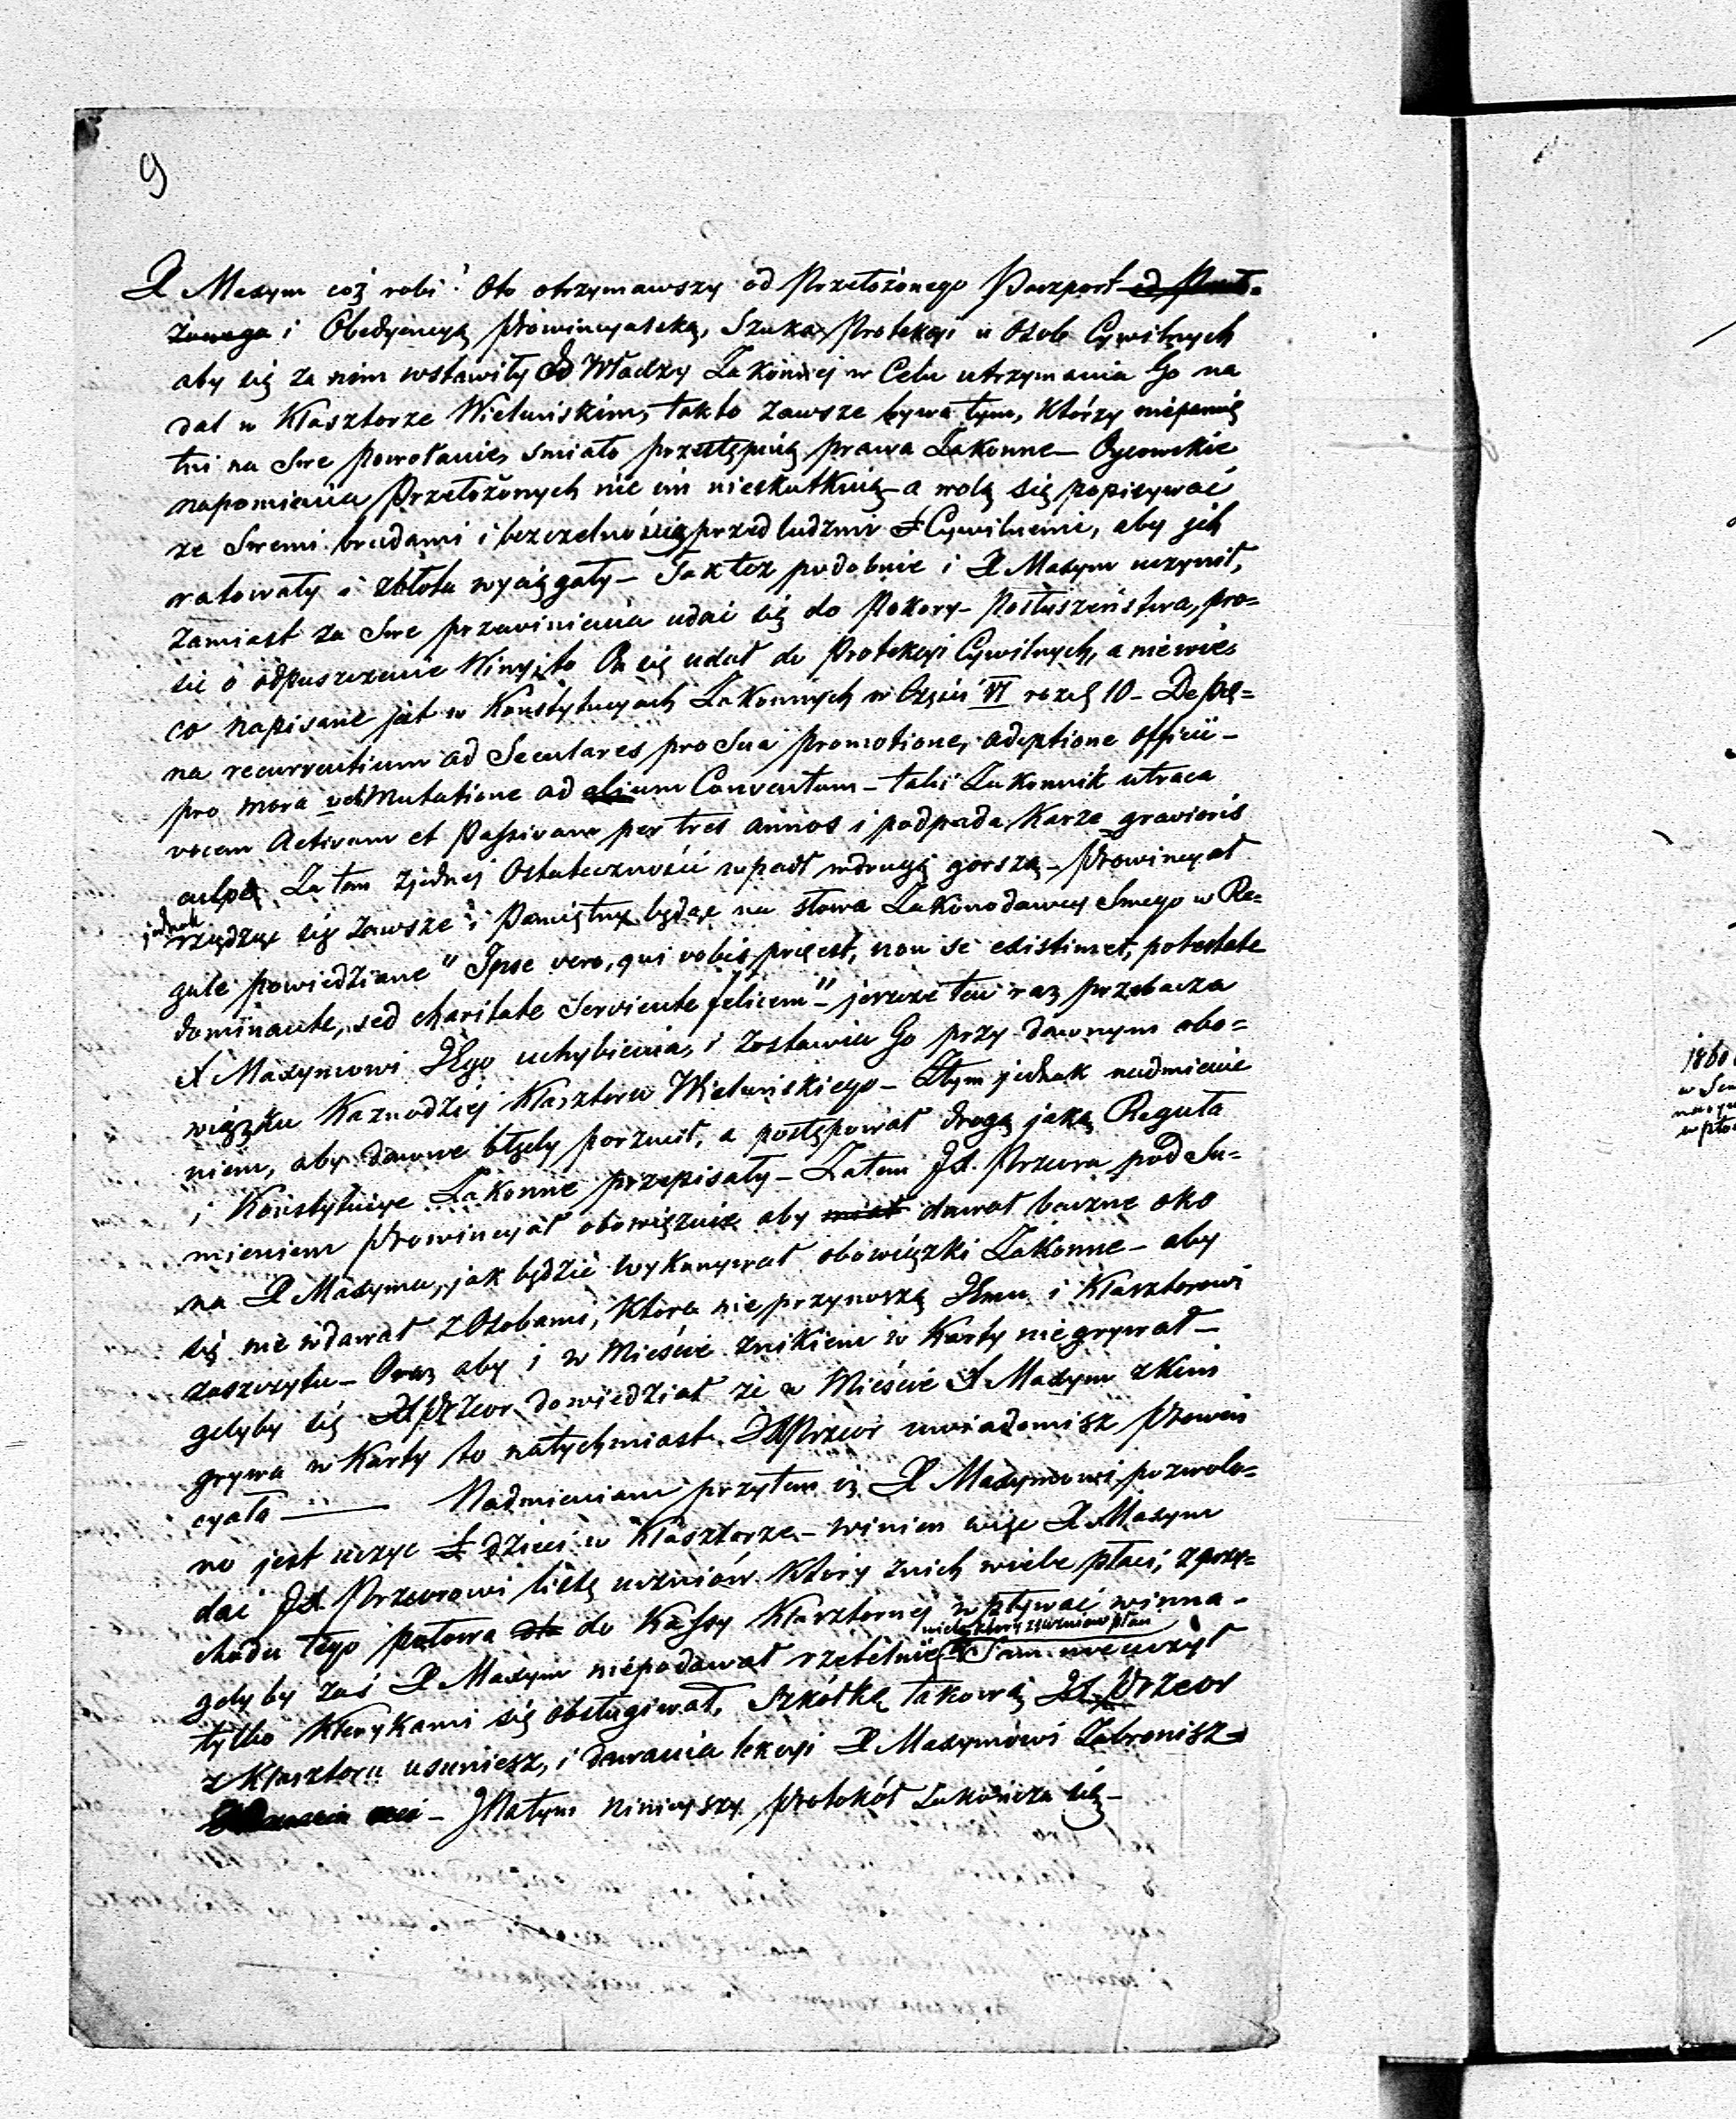 9
X Maxym cóż robi? Oto otrzymawszy od Przełożonego Paszport od Przeło-
żonego i Obedyencyą Prowincyalską, Szuka Protekcyi u Osob Cywilnych
aby się za nim wstawiły do Władzy Zakonnej w Celu utrzymania Go na
dal w Klasztorze Wieluńskim, takto zawsze bywa tym, którzy niepamię
tni na Swe powołanie, śmiało przestępują prawa Zakonne – Oycowskie
napomienia Przełożonych nic im nieskutkują – a wolą się popisywać
ze Swemi brudami i bezczelnością przed ludźmi Cywilnemi, aby ich
ratowały i z błota wyciągały – Tak też podobnie i X Maxym uczynił,
zamiast za Swe przewinienia udać się do Pokory – Posłuszeństwa, pro-
sić o odpuszczenie Winy, to On się udał do Protekcyi Cywilnych, a niewie
co napisane jest w Konstytucyach Zakonnych w Części VI rozdz 10 – De pę-
na recurrentium ad Seculares pro Sua promotione, adeptione officii –
pro mora vel Mutatione ad alium Conventum – taki Zakonnik utraca
vocem Activam et Passivam per tres annos i podpada Karze gravioris
culpę. Zatem z jednej Ostateczności wpadł w drugą gorszą – Prowincyał
jednak
rządząc się zawsze i Pamiętny będąc na słowa Zakonodawcy Swego w Re-
gule powiedziane "Ipse vero, qui vobis pręest, non se existimet, potestate
dominante, sed charitate Serviente felicem" – jeszcze ten raz przebacza
X Maxymowi JEgo uchybienia, i zostawia Go przy dawnym obo-
wiązku Kaznodziej Klasztoru Wieluńskiego – Z tym jednak nadmienie
niem, aby dawne błędy porzucił, a postępował drogą jaką Reguła
i Konstytucye Zakonne przepisały – Zatem JX. Przeora pod Su-
mieniem Prowincyał obowięzuie aby miał dawał baczne oko
na X Maxyma, jak będzie wykonywał obowiązki Zakonne – aby
się nie wdawał z Osobami, które nie przynoszą JEmu i Klasztorowi
zaszczytu – Oraz aby i w Mieście znikiem w Karty nie grywał –
gdyby się JX Przeor dowiedział że w Mieście X Maxym zkim
grywa w Karty to natychmiast JX Przeor uwiadomisz Prowin
cyała — Nadmieniam przytem iż X Maxymowi pozwolo-
no jest uczyc dzieci w Klasztorze – winien więc X Maxym
dać JX. Przeorowi listę uczniów który znich wiele płaci, z przy-
chodu tego połowa do Kassy Klasztornej wpływać winna –
wiele który z uczniow płaci
gdyby zaś X Maxym niepodawał rzetelnie Sam nie uczył
tylko Klerykami się obsługiwał, Szkółkę takową JX. Przeor
z Klasztoru usuniesz, i dawania lekcyi X Maxymowi Zabronisz –
– Natym niniejszy Protokół Zakończa się –
1860